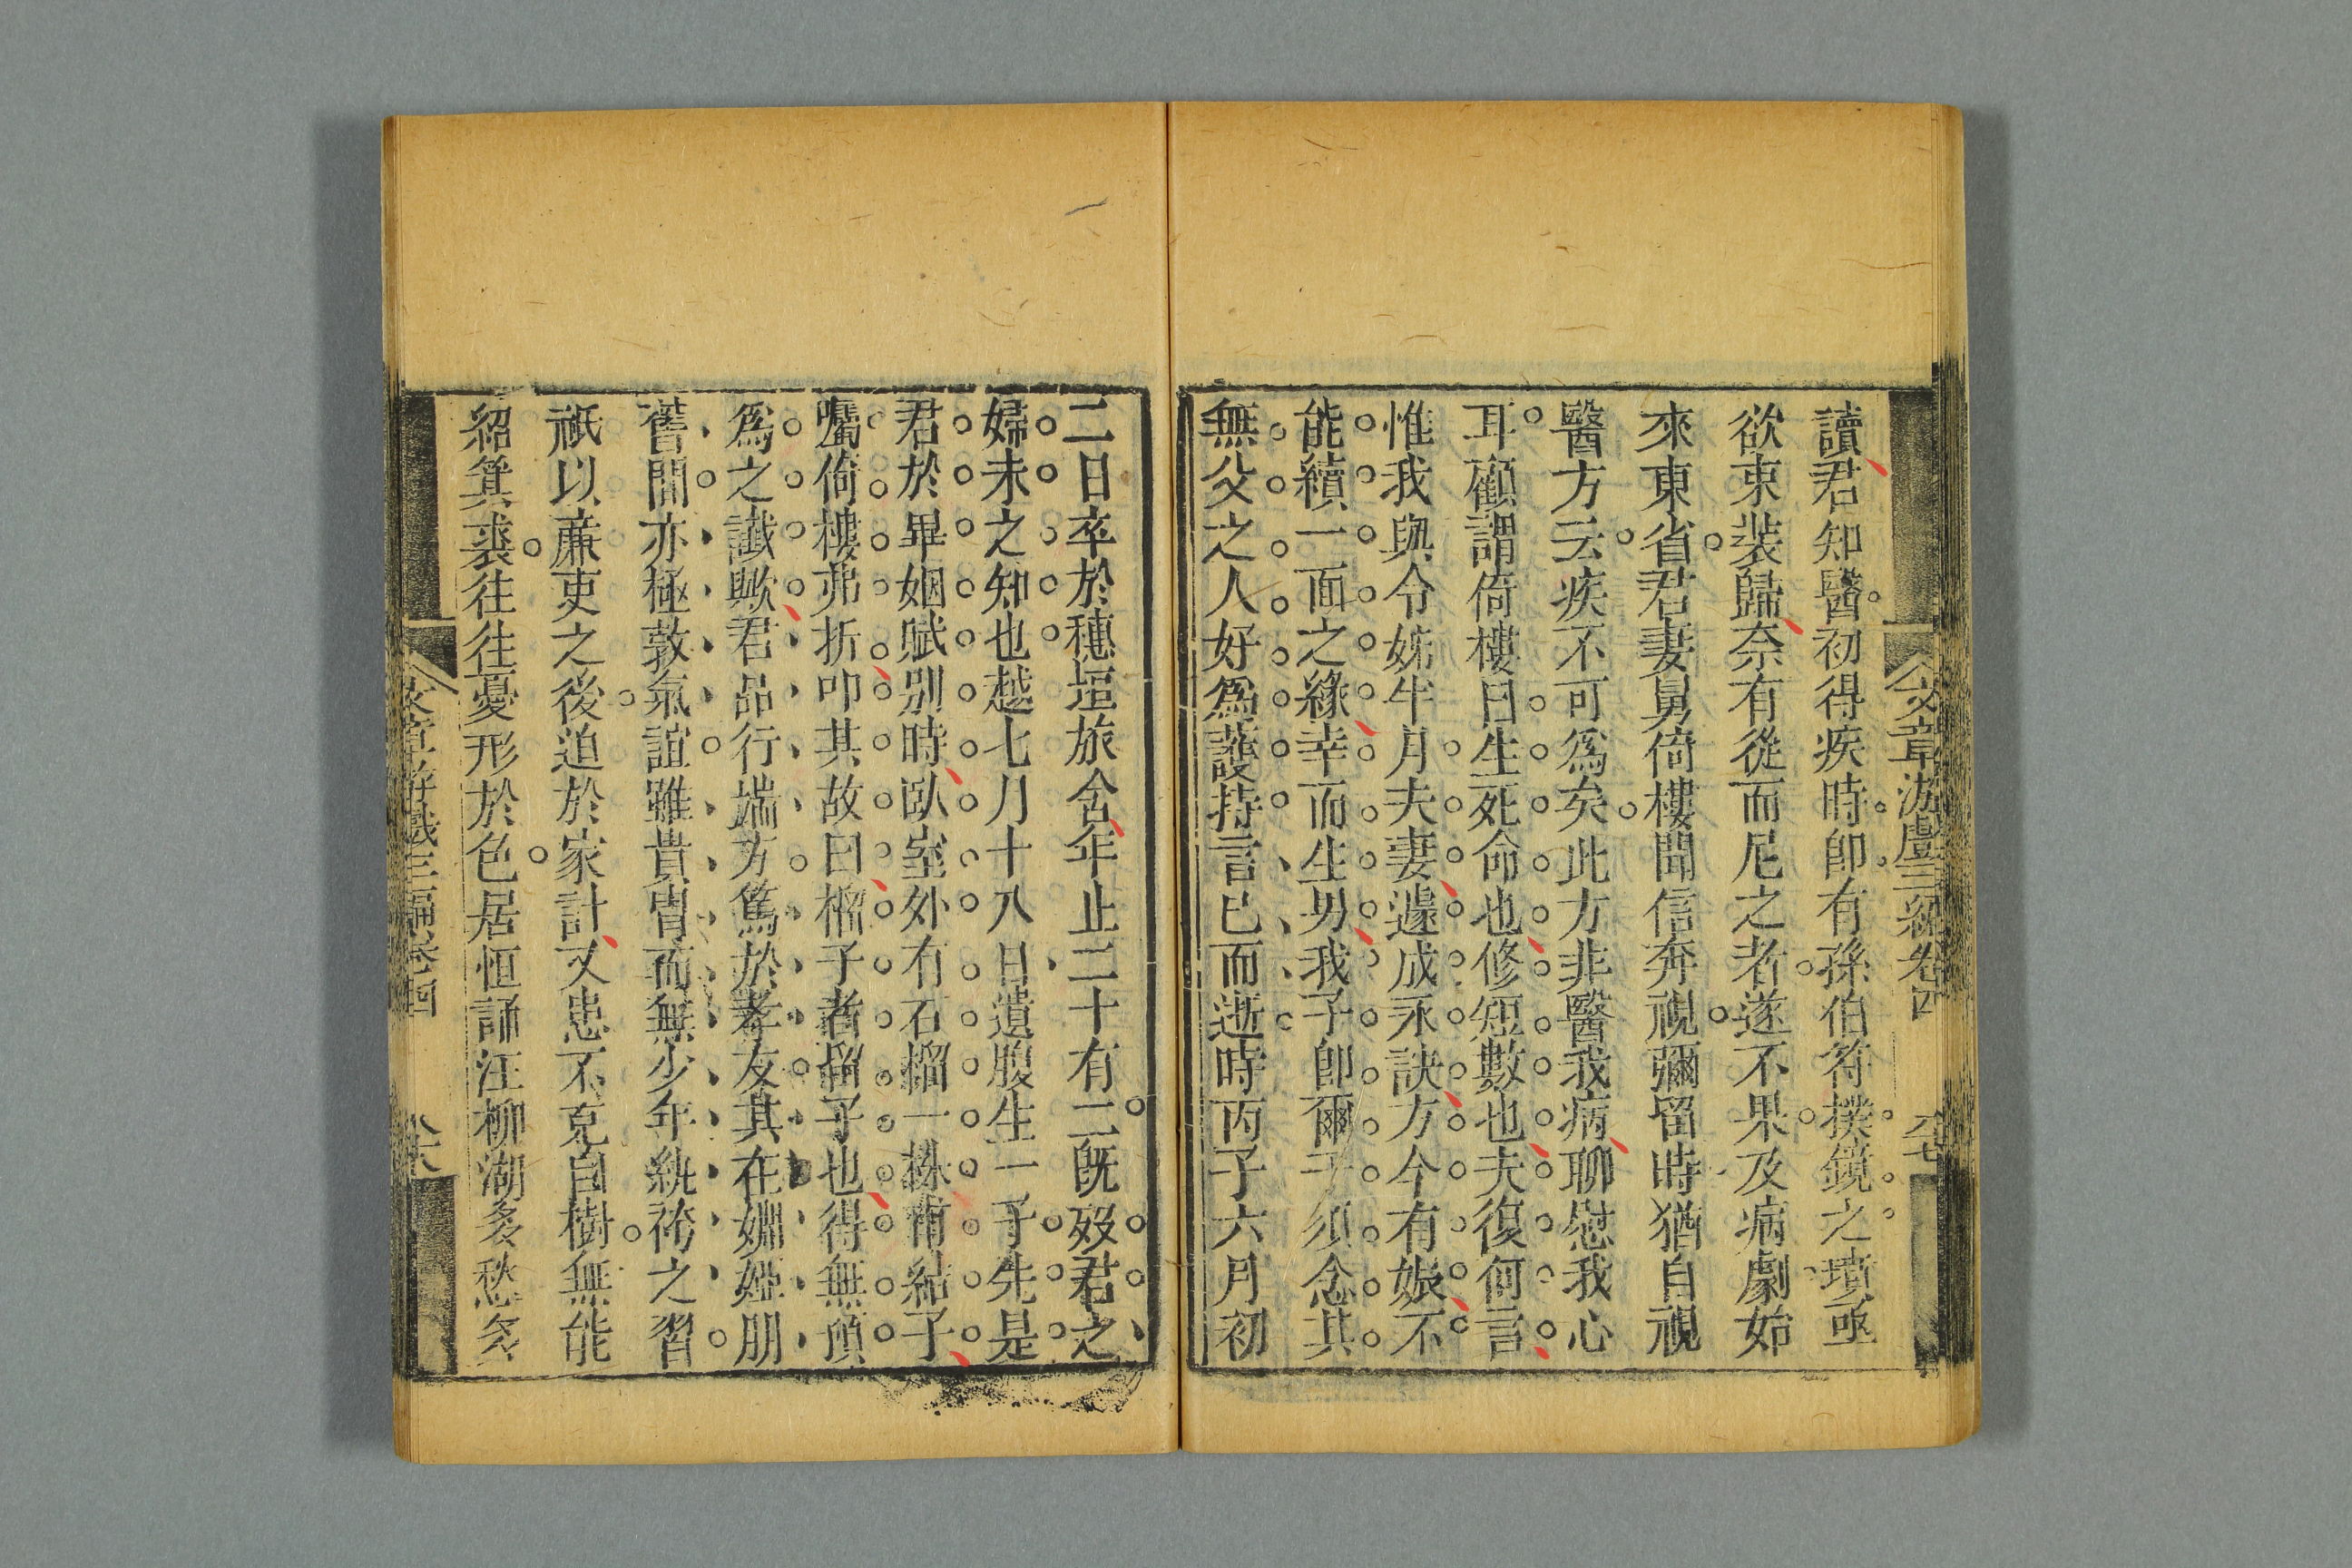 文章游戲三編卷四
六七
讀君知醫初得疾時卽有孫伯符撲鏡之墳亟
欲束裝歸奈有從而尼之者遂不果及病劇始
來東省君妻舅倚樓聞信奔視彌留時猶自視
醫方云疾不可爲矣此方非醫我病聊慰我心
耳顧謂倚樓曰生死命也修短數也夫復何言
惟我與令姊半月夫妻遽成永訣方今有娠不
能續一面之緣幸而生男我子卽爾子須念其
無父之人好爲護持言已而逝時丙子六月初
二日卒於穗垣旅舍年止二十有二旣歿君之
婦未之知也越七月十八日遺腹生一子先是
君於畢姻賦別時臥室外有石榴一株甫結子
囑倚樓弗折叩其故曰榴子者留子也得無預
爲之讖歟君品行端方篤於孝友其在婣婭朋
舊間亦極敦氣誼雖貴胄而無少年紈袴之習
祇以廉吏之後迫於家計又患不克自樹無能
紹箕裘往往憂形於色居恒誦江柳湖多愁多
文章游戲三編卷四
六八